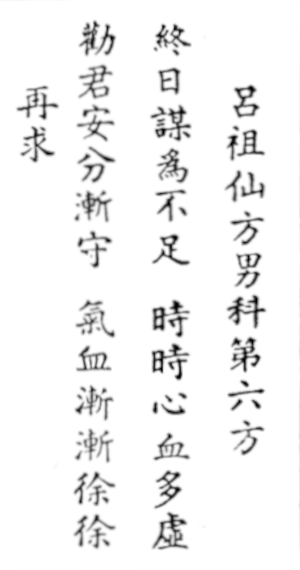 呂祖仙方男科第六方
終日謀為不足 時時心血多虛
勸君安分漸守 氣血漸漸徐徐
再求